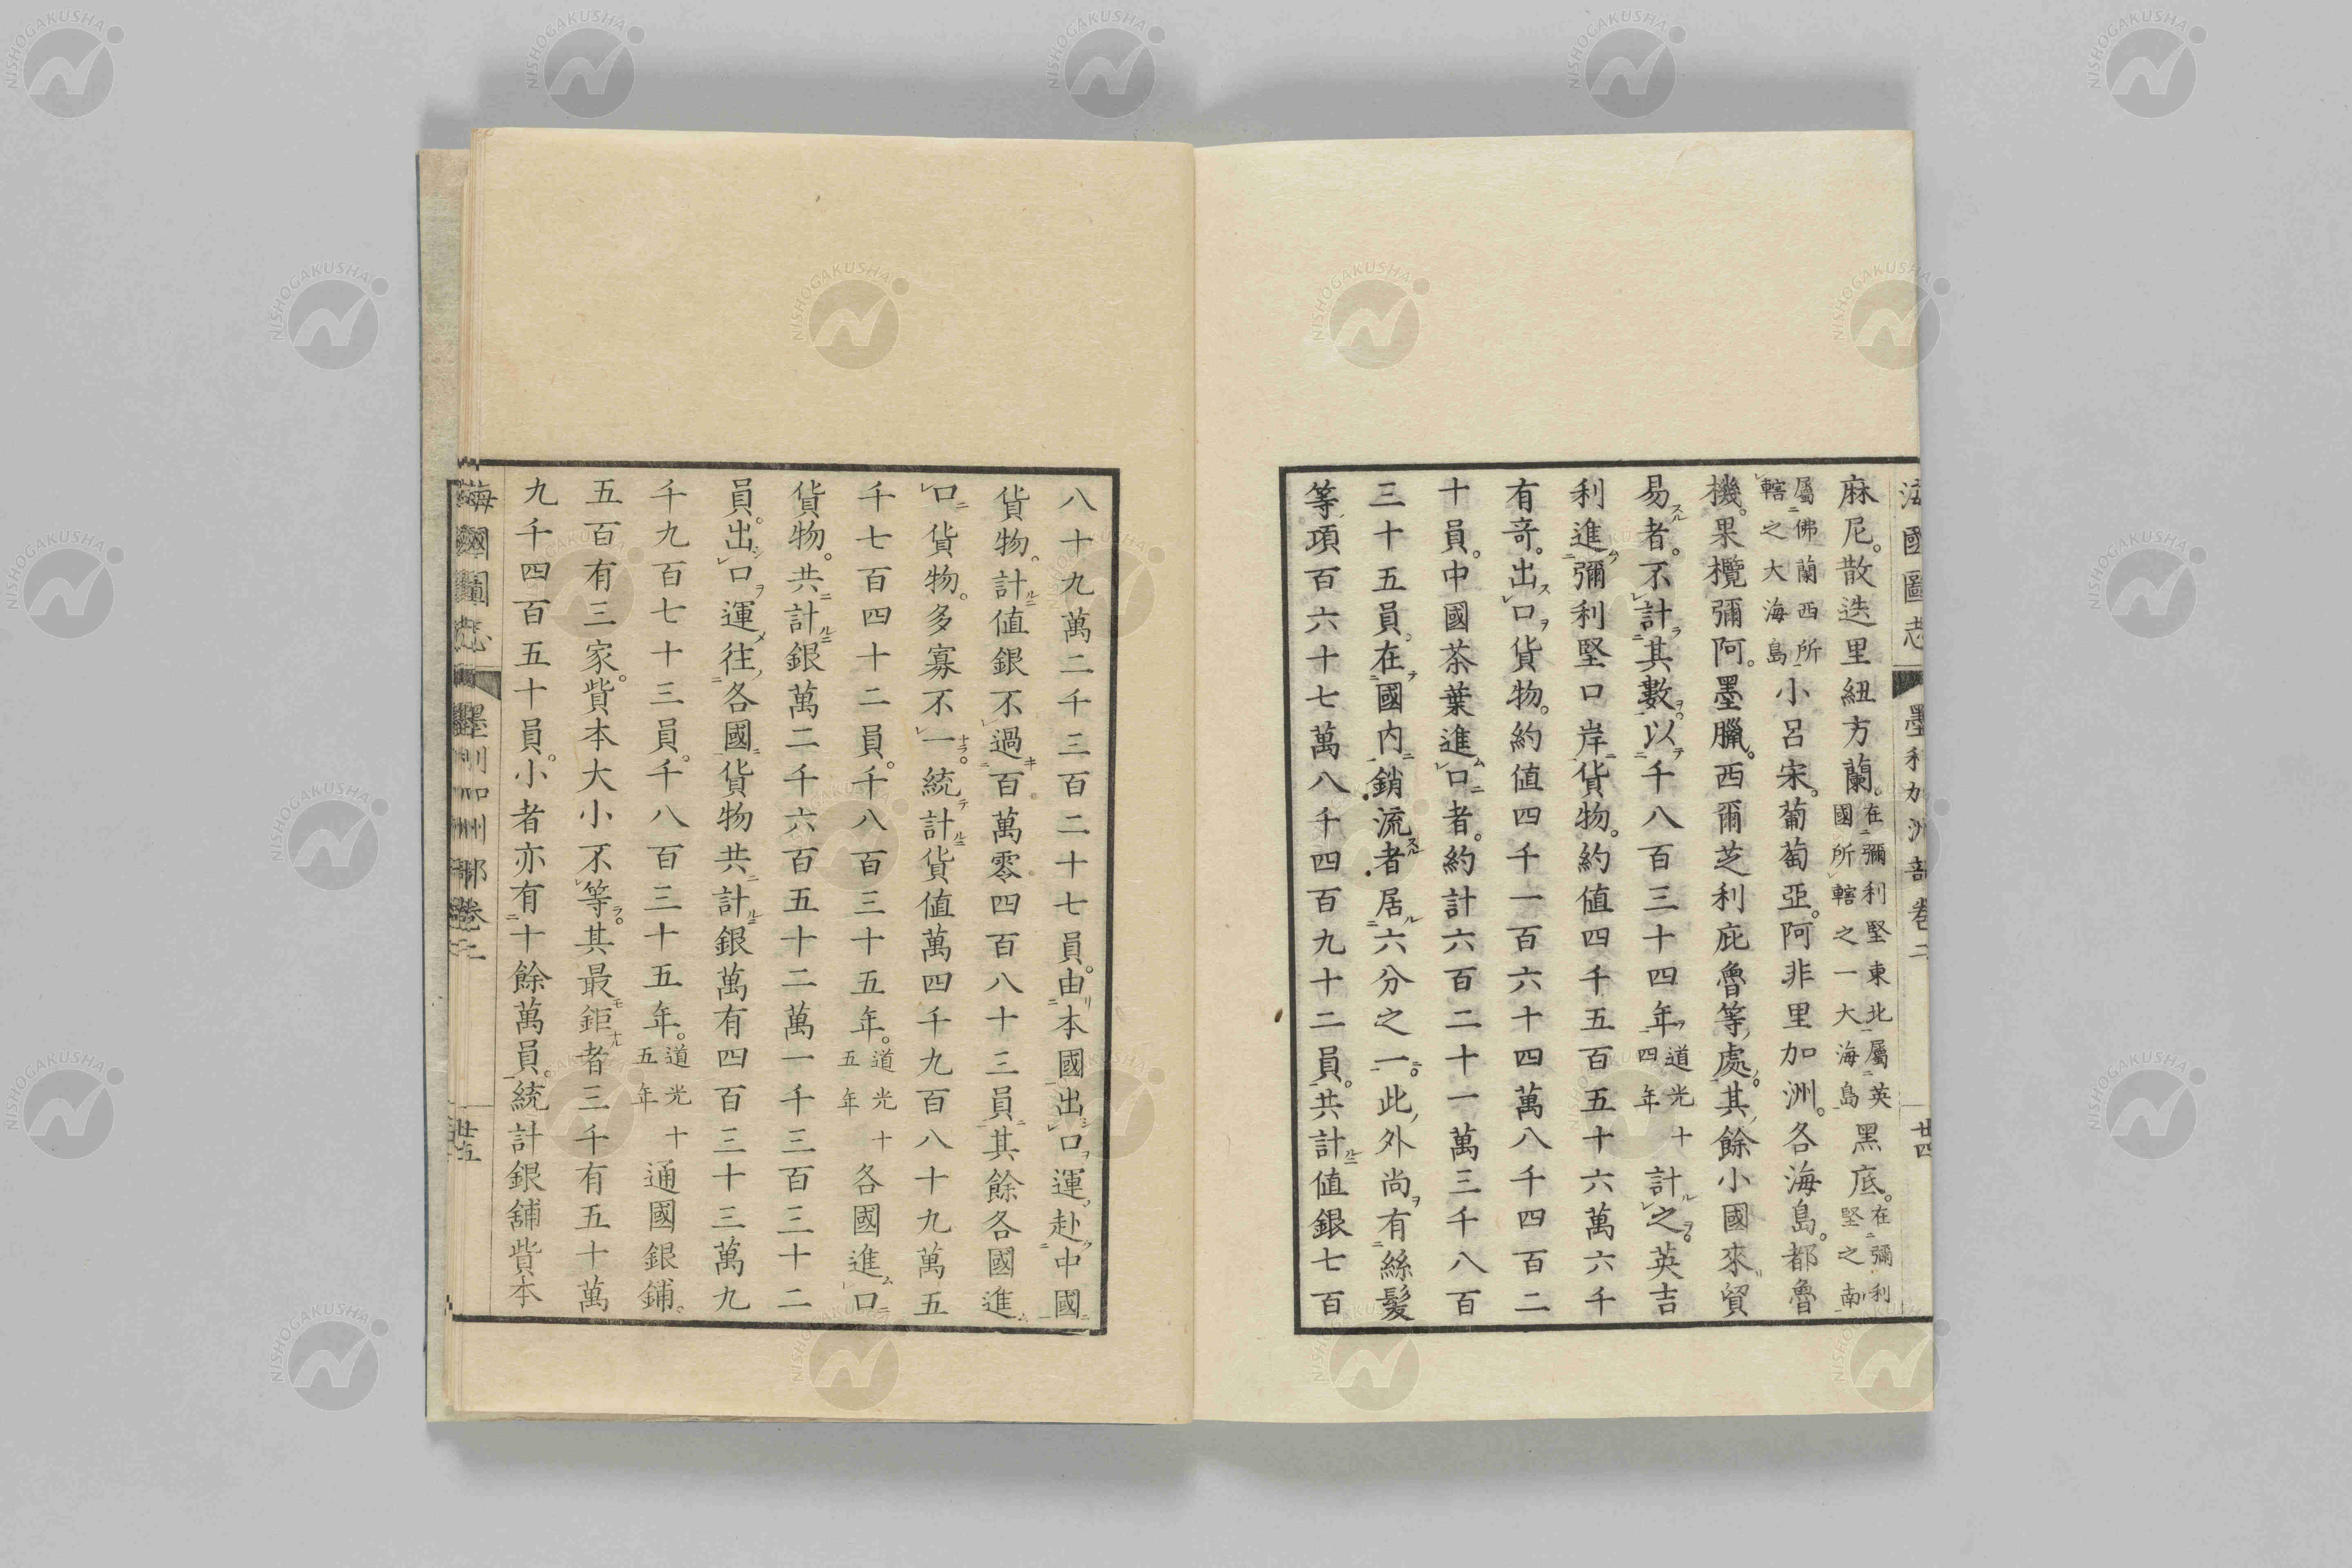 海國圖志 墨利加洲部卷二 廿四
麻尼。散迭里紐方蘭。在彌利堅東北屬英國所轄之一大海島黑底。在彌利堅之南
屬佛蘭西所轄之大海島小呂宋。葡萄亞。阿非里加洲。各海島。都魯
機。果欖彌阿。墨臘。西爾芝利庇魯等處。其餘小國來貿
易者。不計其數。以千八百三十四年道光十四年計之。英吉
利進彌利堅口岸貨物。約値四千五百五十六萬六千
有奇。出口貨物。約値四千一百六十四萬八千四百二
十員。中國茶葉進口者。約計六百二十一萬三千八百
三十五員。在國內銷流者居六分之一。此外尚有絲髮
等項百六十七萬八千四百九十二員。共計値銀七百
八十九萬二千三百二十七員。由本國出口運赴中國
貨物。計値銀不過百萬零四百八十三員其餘各國進
口貨物。多寡不一。統計貨値萬四千九百八十九萬五
千七百四十二員。千八百三十五年。道光十五年各國進口
貨物。共計銀萬二千六百五十二萬一千三百三十二
員。出口運往各國貨物共計銀萬有四百三十三萬九
千九百七十三員。千八百三十五年。道光十五年通國銀鋪。
五百有三家。貲本大小不等。其最鉅者三千有五十萬
九千四百五十員。小者亦有十餘萬員。統計銀舖貲本
海國圖志 墨利加洲部卷二 廿五
NISHOGAKUSHA